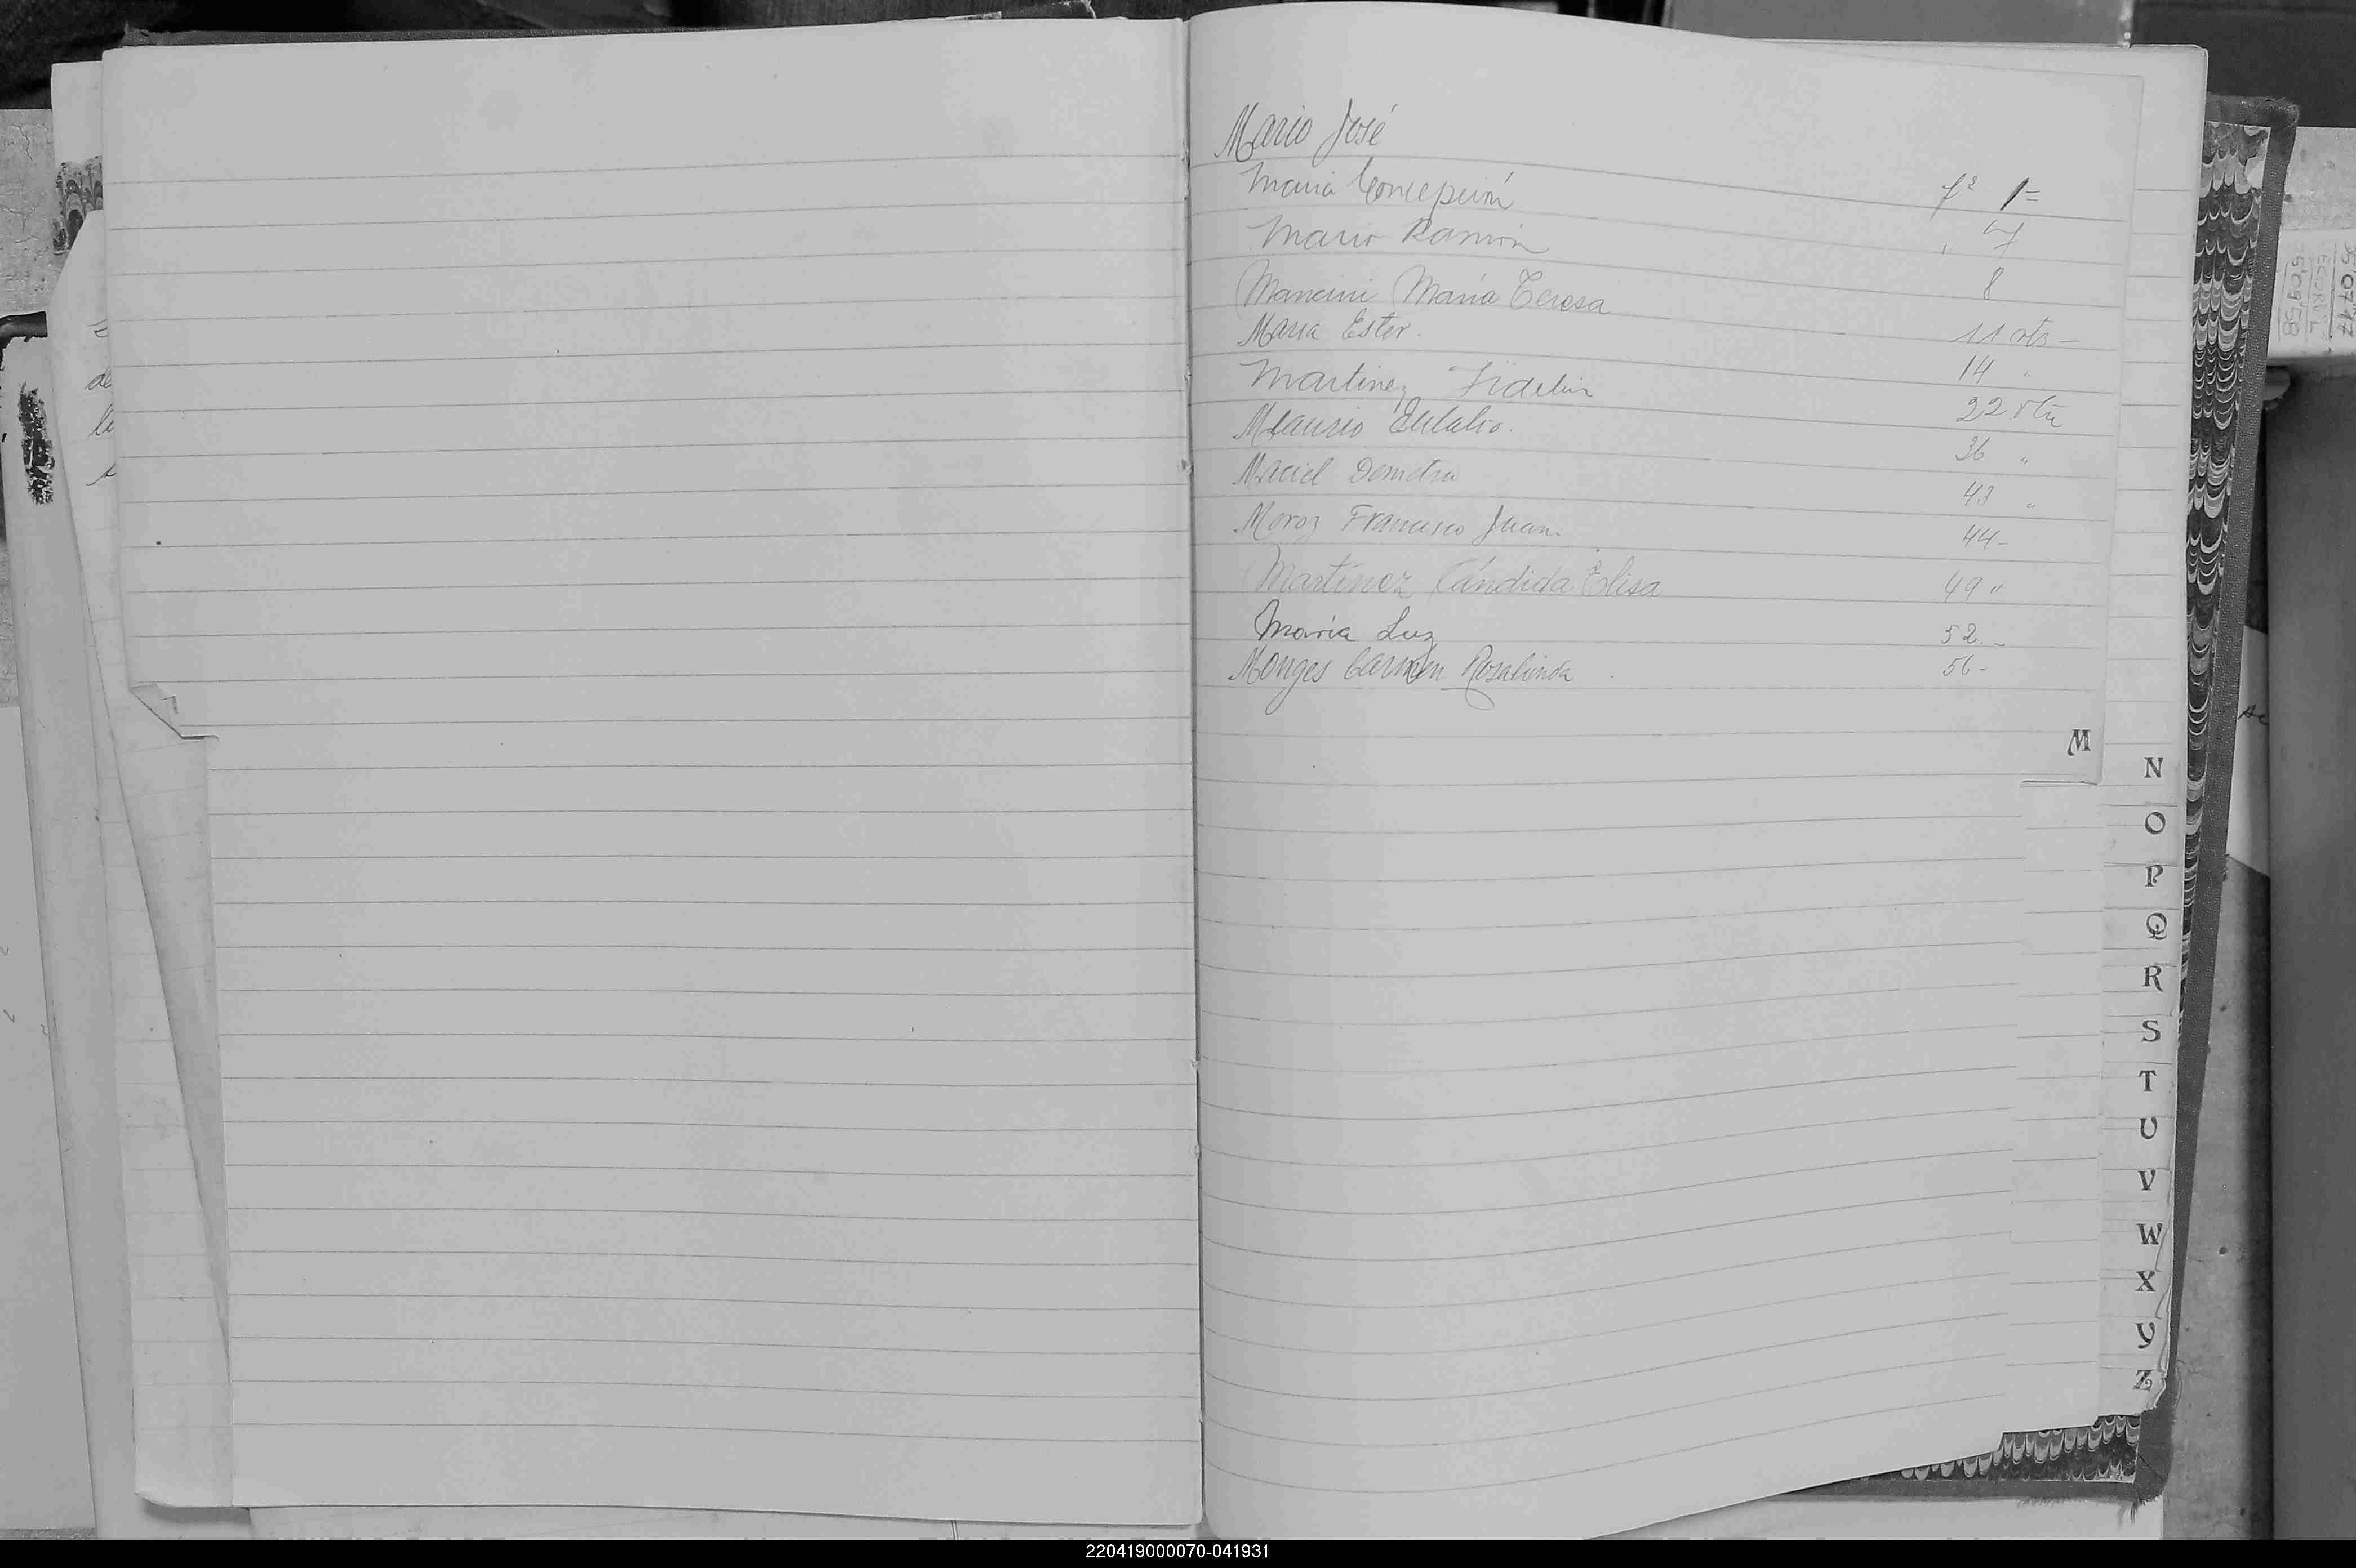 Mario José
Maria Concepción fº 1=
Mario Ramón " 7
Mancini María Teresa 8
Maria Ester. 11 vta —
Martinez Fidelin 14 "
Eulalio. 22 vta
Maciel Demetrio 36 "
43 "
Moroz Francisco Juan. 44-
Martínez Cándida Elisa 49 "
Maria Luz 52.-
Monges Carmen Rosalinda 56-
M
N
O
P
Q
R
S
T
U
V
W
X
Y
Z
220419000070-041931